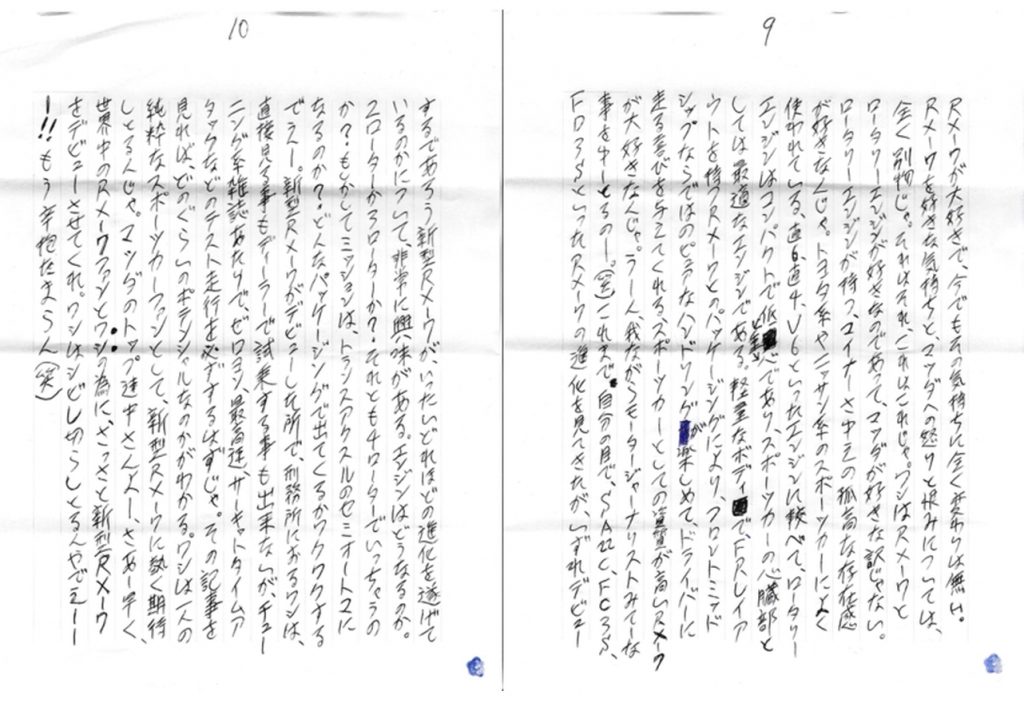 9
RX-7が大好きで、今でもその気持ちに全く変わりは無い。
RX-7を好きな気持ちと、マツダへの怒りと恨みについては、
全く別物じゃ。それはそれ、これはこれじゃ。ワシはRX-7と
ロータリーエンジンが好きなのであって、マツダが好きな訳じゃない。
ロータリーエンジンが持つ、マイナーさ中での孤高な存在感
が好きなんじゃ。トヨタ系やニッサン系のスポーツカーによく
使われている、直6、直4、V6といったエンジンに較べて、ロータリー
エンジンはコンパクトで低重心であり、スポーツカーの心臓部と
しては最適なエンジンである。軽量なボディで、FRレイア
ウトを持つRX-7とのパッケージングにより、フロントミッド
シップならではのピュアなハンドリングが楽しめて、ドライバーに
走る喜びを与えてくれるスポーツカーとしての資質が高いRX-7
が大好きなんじゃ。うーん、我ながらモータージャーナリストみてーな
事をゆーとるのー。(笑)これまで、自分の目で、SA22C、FC3S、
FD3SといったRX-7の進化を見てきたが、いずれデビュー
10
するであろう新型RX-7が、いったいどれほどの進化を遂げて
いるのかについて、非常に興味がある。エンジンはどうなるのか。
2ローターか3ローターか?それとも4ローターでいっちゃうの
か?もしかしてミッションは、トランスアクスルのセミオートマに
なるのか?どんなパッケージングで出てくるかワクワクする
でぇー。新型RX-7がデビューした所で、刑務所におるワシは、
直接見る事もディーラーで試乗する事も出来ないが、チュー
ニング系雑誌あたりで、ゼロヨン、最高速、サーキットタイムア
タックなどのテスト走行を必ずするはずじゃ。その記事を
見れば、どのぐらいのポテンシャルなのかがわかる。ワシは一人の
純粋なスポーツカーファンとして、新型RX-7に熱く期待
しとるんじゃ。マツダのトップ連中さんよー、さあー早く、
世界中のRX-7ファンとワシの為に、さっさと新型RX-7
をデビューさせてくれ。ワシはシビレ切らしとるんやでぇーー
ー!!もう辛抱たまらん(笑)